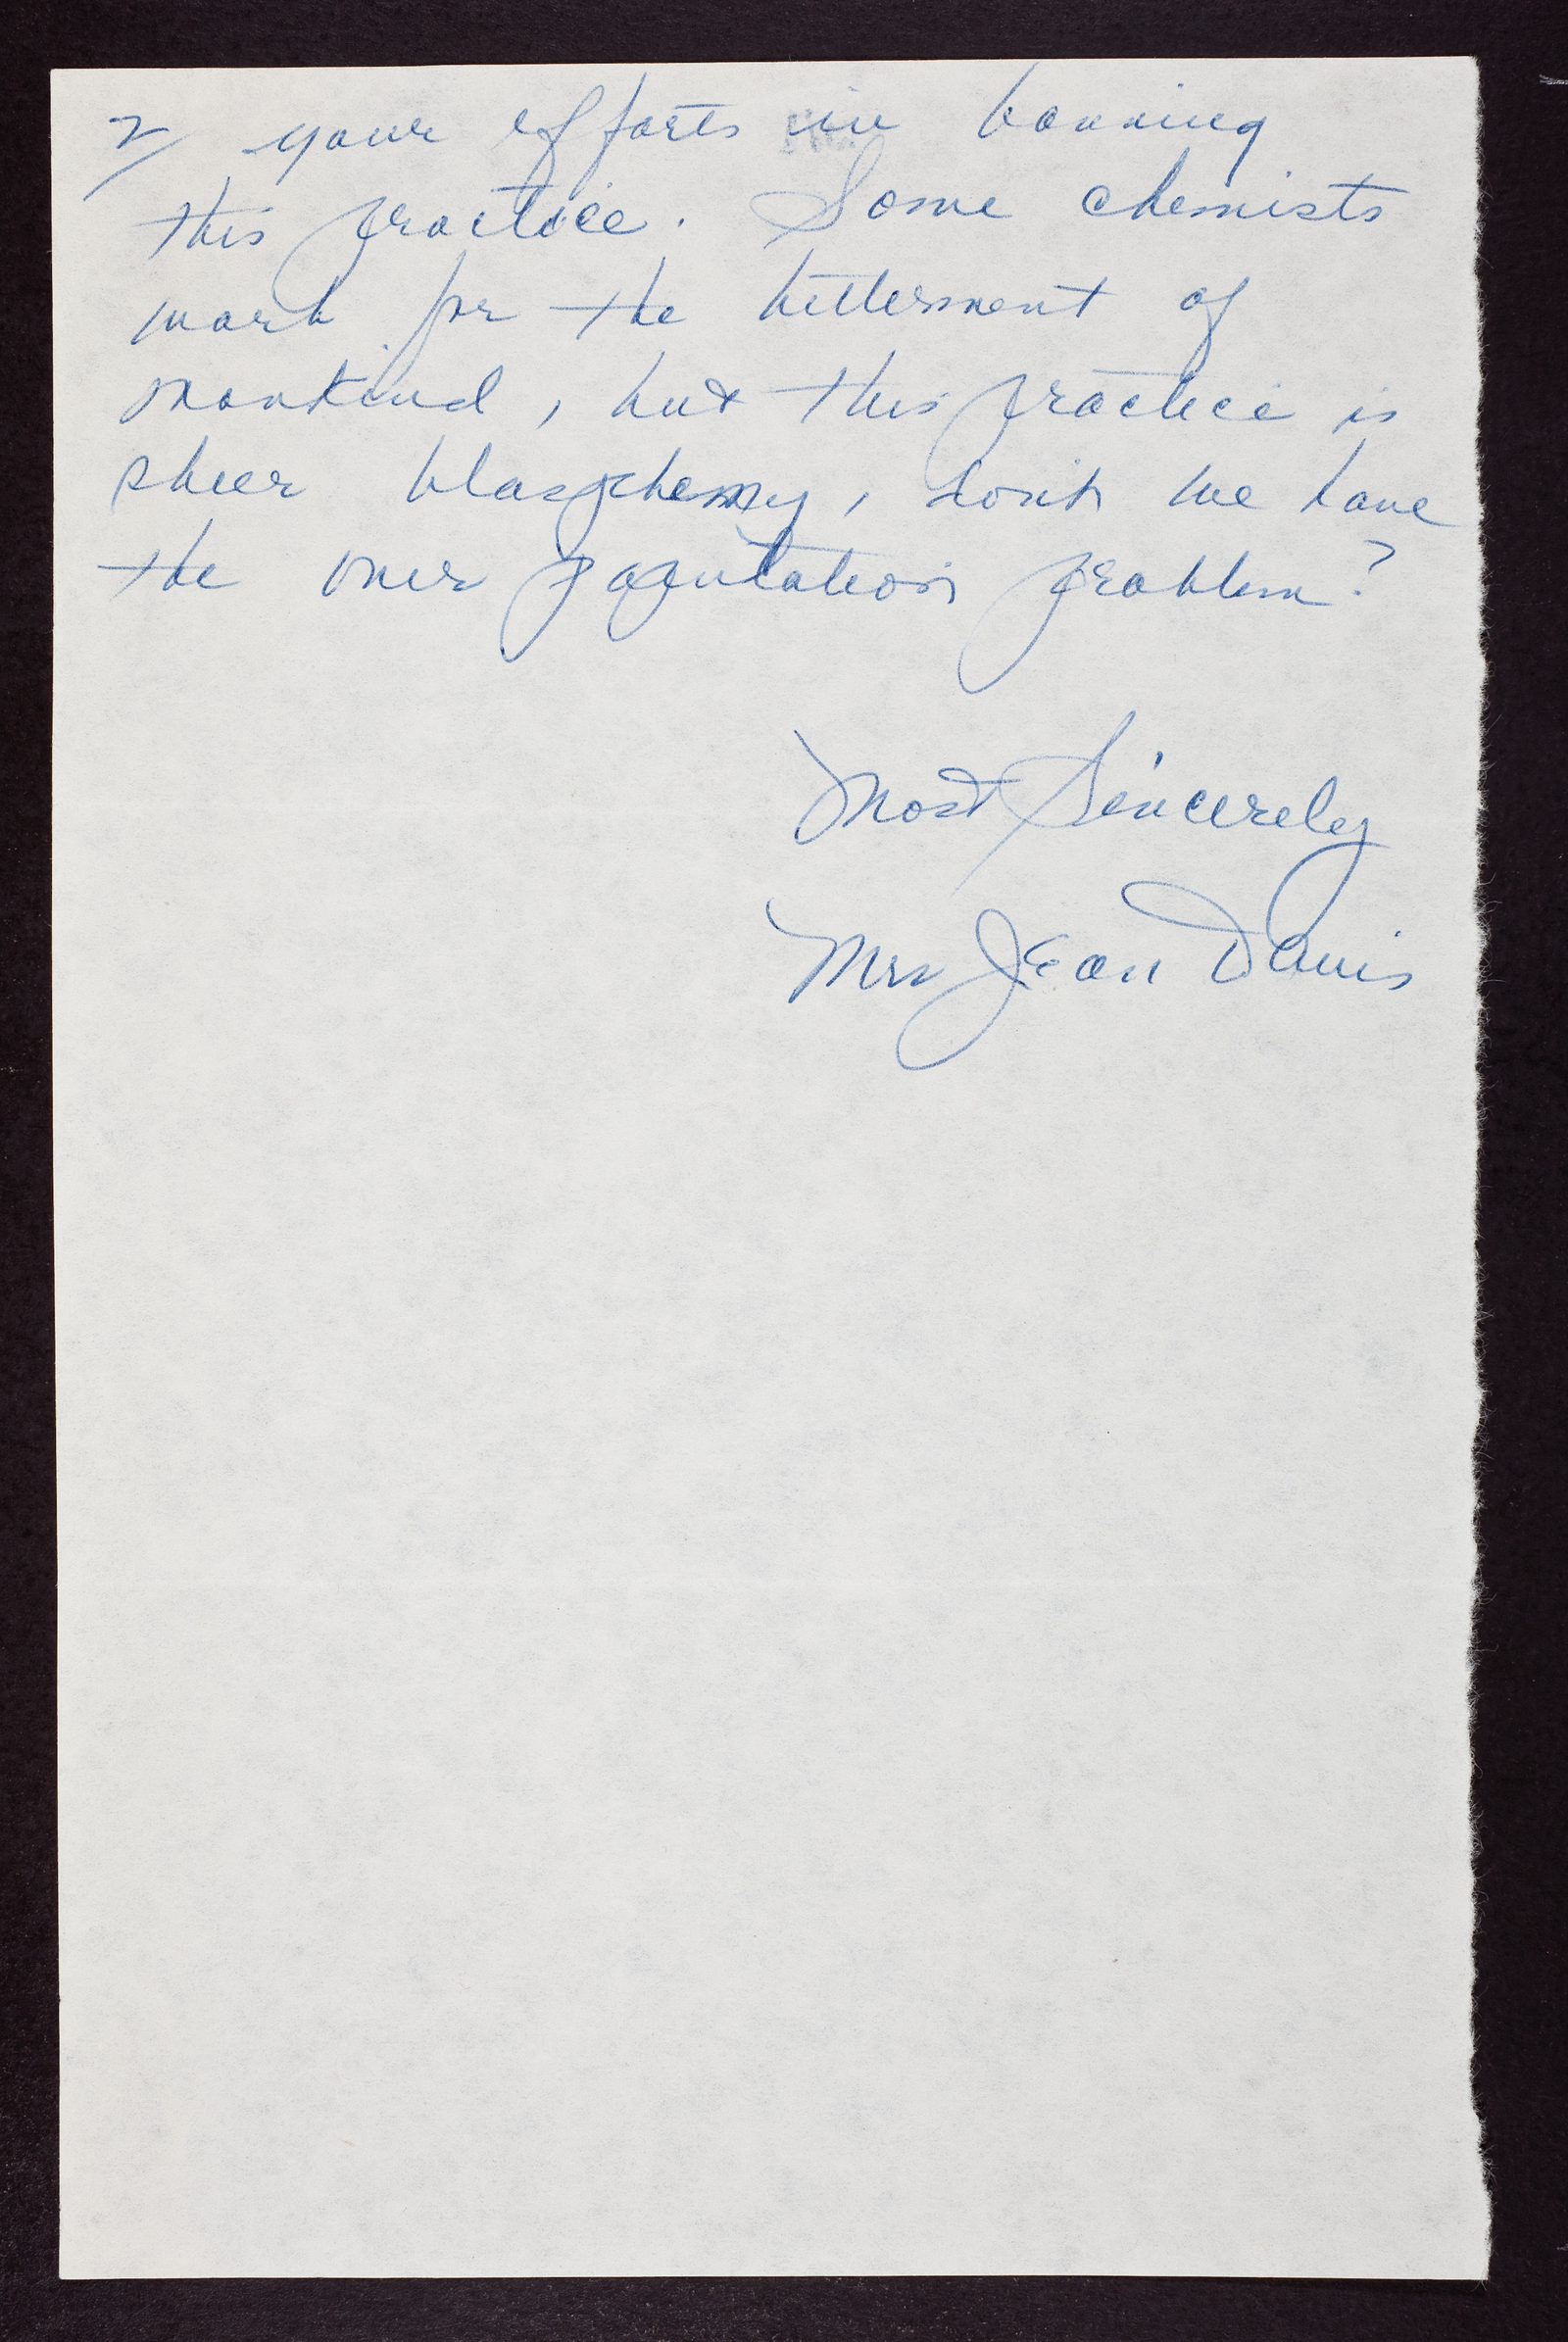 2/ your efforts in banning
this practice. Some chemists
work for the betterment of
mankind, but this practice is
sheer blasphemy, don't we have
the over population problem?
Most Sincerely
Mrs Jean Davis